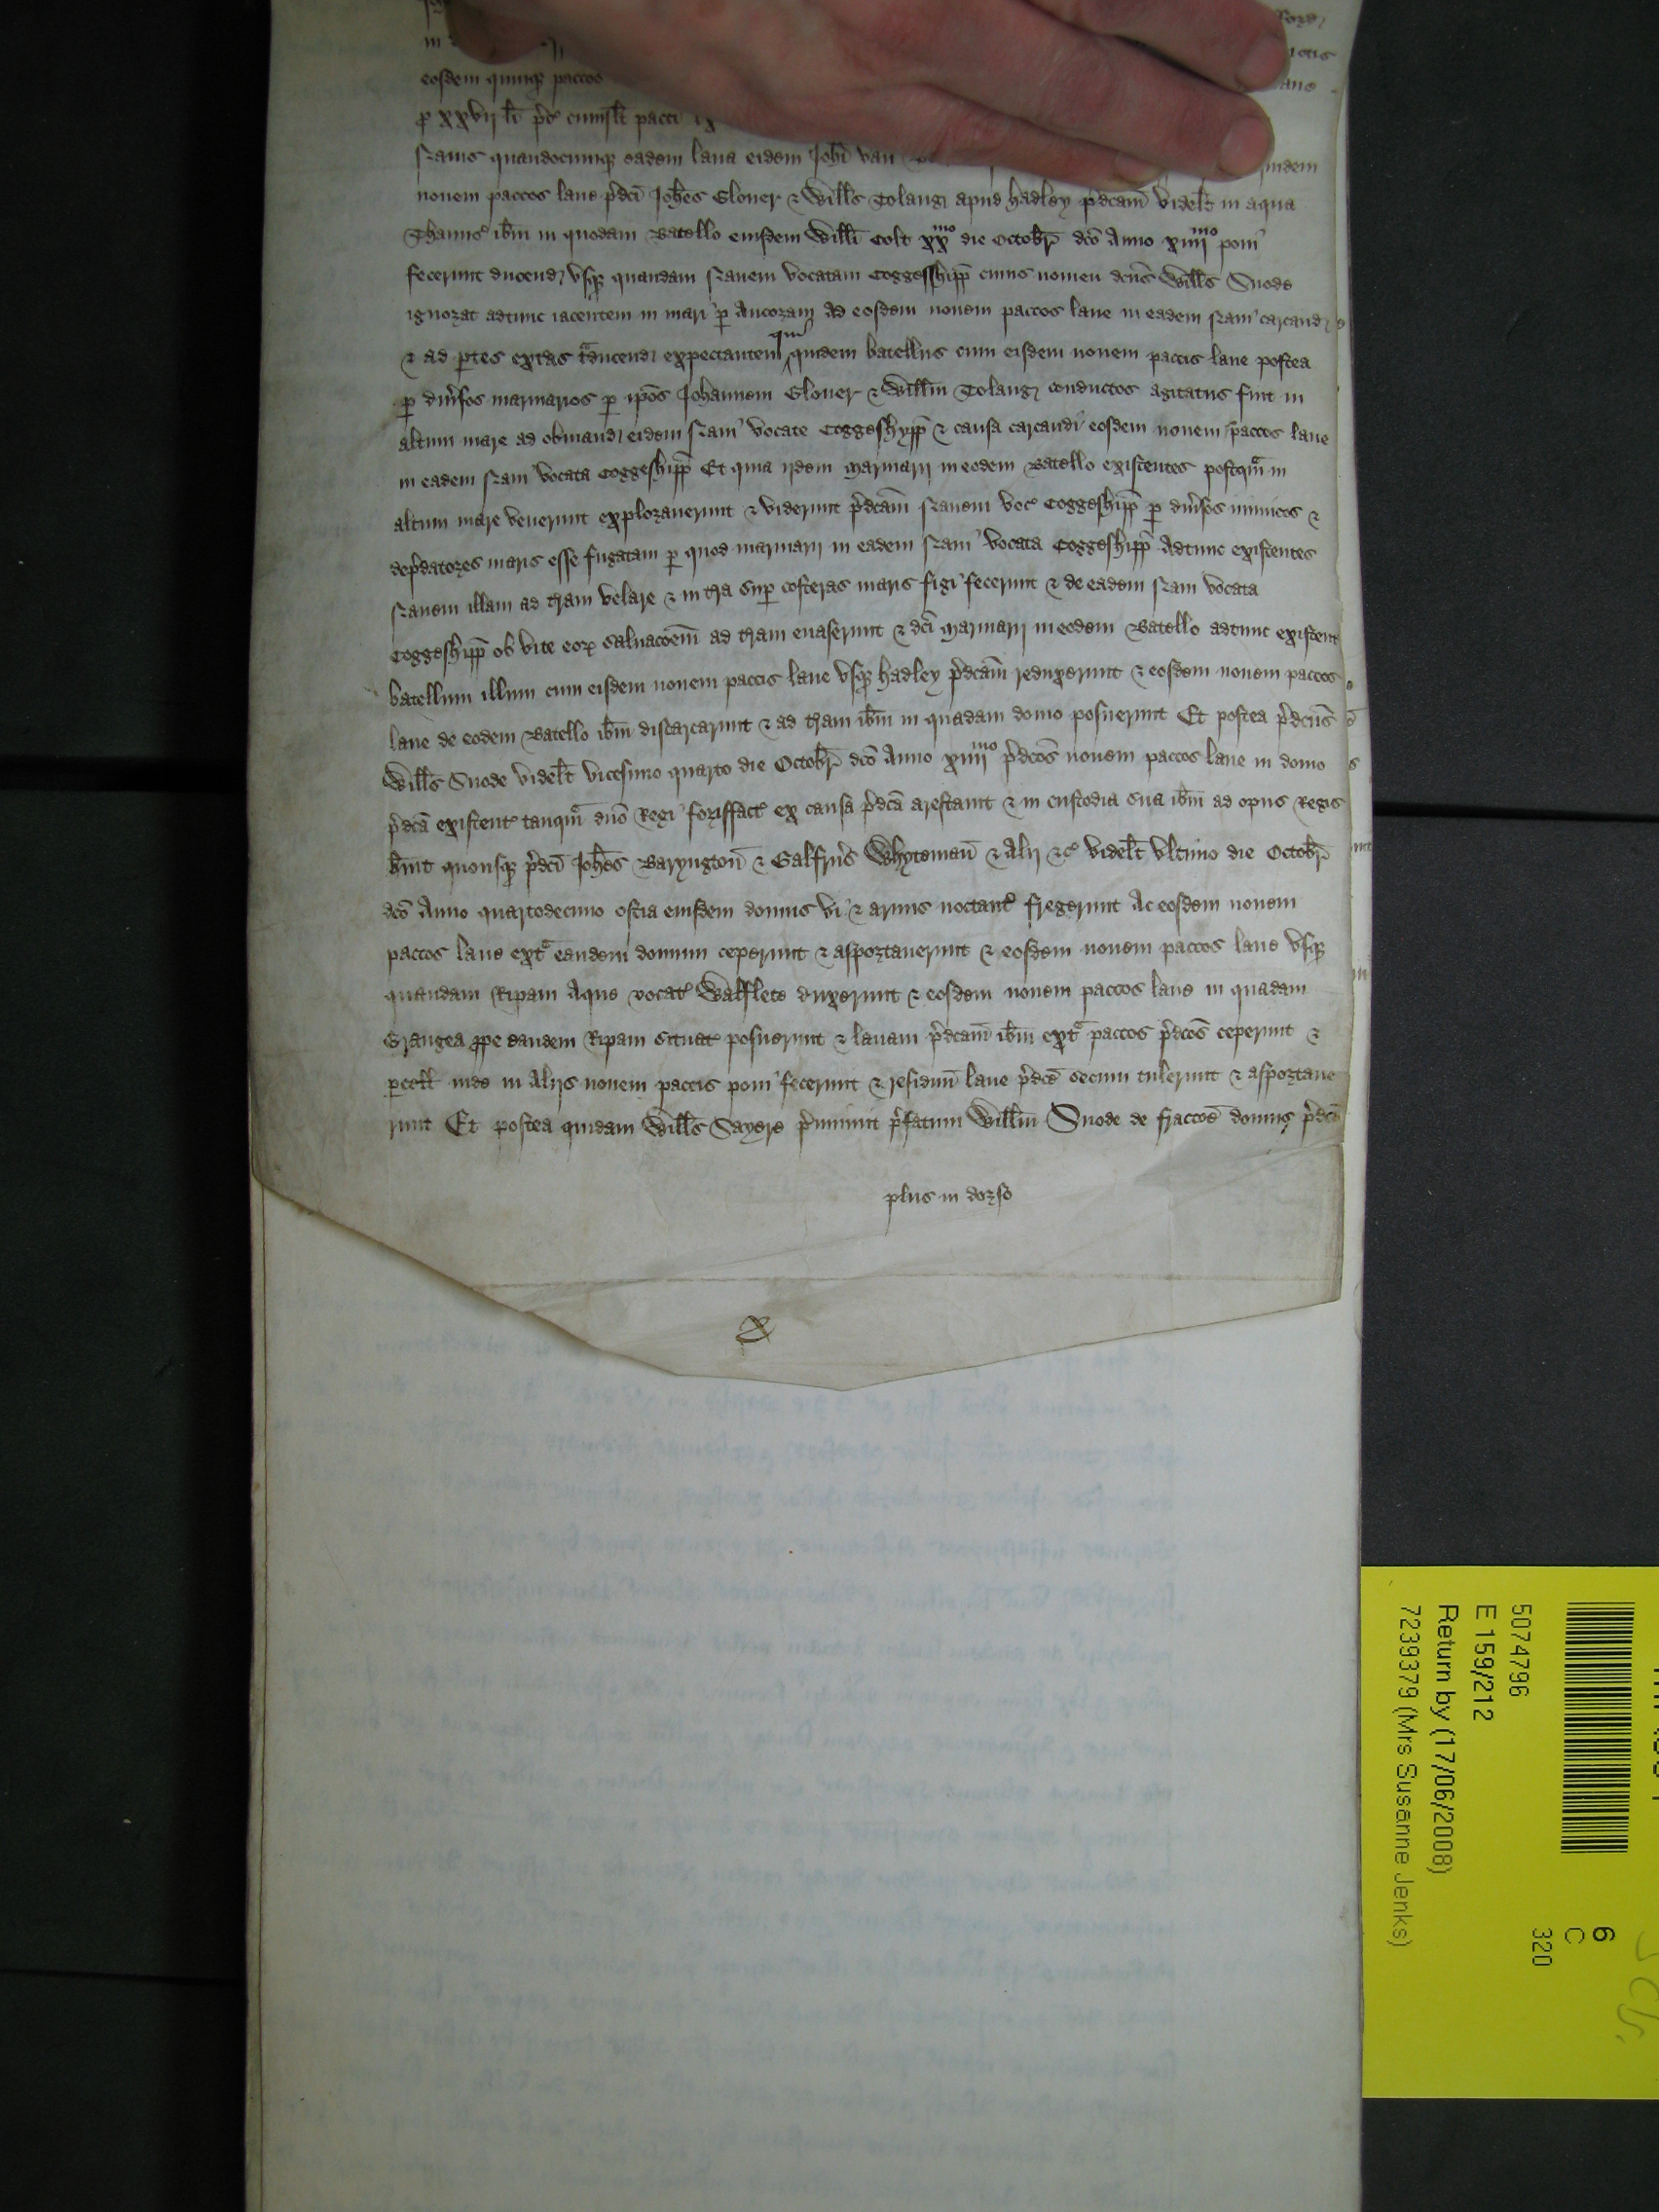 in
eosdem quinqꝫ paccos
ꝑ xxvij li p̄c̛ cuiuslt̄ pacci ix
Nauis quandocumqꝫ eadem lana eidem Joħi van
nouem paccos lane p̄dc̄i Joħes Glouer ⁊ Wills̄ Tolang apud Hadley p̄dcam̄ videlt̄ in aqua
Thamis̛ ibm̄ in quodam Batello eiusdem Willi Colt xxmo die Octobr̄ dc̄o Anno xiiijmo poni
fecerunt ducend vsqꝫ quandam Nauem vocatam Coggesshipp̄ cuius nomen dcūs Wills̄ Snode
ignorat adtunc iacentem in mari ꝑ Ancoram Ad eosdem nouem paccos lane in eadem Naui carcand
⁊ ad ꝑtes ext̄as t̄ducend expectantem qui quidem batellus cum eisdem nouem paccis lane postea
ꝑ diưsos marinarios ꝑ ip̄os Johannem Glouer ⁊ Willm̄ Tolang conductos agitatus fuit in
altum mare ad obuiand eidem Naui vocate Coggeshypp̄ ⁊ causa carcandi eosdem nouem paccos lane
in eadem Naui vocata Coggeshipp̄ Et quia ijdem Marinarij in eodem Batello existentes postqm̄ in
altum mare venerunt explorauerunt ⁊ viderunt p̄dcam̄ Nauem voc̛ Coggeshipp̄ ꝑ diưsos inimicos ⁊
dep̄datores maris esse fugatam ꝑ quod marinarij in eadem Naui vocata Coggeshipp̄ Adtunc existentes
Nauem illam ad t̛ram velare ⁊ in t̛ra sup̄ costeras maris figi fecerunt ⁊ de eadem Naui vocata
Coggeshipp̄ ob vite eoꝝ saluacoem̄ ad t̛ram euaserunt ⁊ dc̄i Marinarij in eodem Batello adtunc existent̛
batellum illum cum eisdem nouem paccis lane vsqꝫ Hadley p̄dcam̄ reduxerunt ⁊ eosdem nouem paccos
lane de eodem Batello ibm̄ discarcarunt ⁊ ad t̛ram ibm̄ in quadam domo posuerunt Et postea p̄dcūs
Wills̄ Snode videlt̄ vicesimo quarto die Octobr̄ dc̄o Anno xiiijmo p̄dcos̄ nouem paccos lane in domo
p̄dcā existent̛ tanqm̄ dn̄o Regi forisffact̛ ex causa p̄dcā arestauit ⁊ in custodia sua ibm̄ ad opus Regis
h̄uit quousqꝫ p̄dc̄i Joħes Baryngton̄ ⁊ Galfrus̄ Whyteman̄ ⁊ Alij ⁊c̛ videlt̄ vltimo die Octobr̄
dc̄o Anno quartodecimo ostia eiusdem domus vi ⁊ armis noctant̛ fregerunt Ac eosdem nouem
paccos lane ext̄ eandem domum ceperunt ⁊ asportauerunt ⁊ eosdem nouem paccos lane vsqꝫ
quandam Ripam Aque vocat̛ Walflete duxerunt ⁊ eosdem nouem paccos lane in quadam
Grangea ꝓpe eandem Ripam situat̛ posuerunt ⁊ lanam p̄dcam̄ ibm̄ ext̄ paccos p̄dcos̄ ceperunt ⁊
ꝑcell̄ inde in Alijs nouem paccis poni fecerunt ⁊ residuū lane p̄dcē secum tulerunt ⁊ asportaue
runt Et postea quidam Wills̄ Sayere p̄muniuit p̄fatum Willm̄ Snode de fraccoe̅ domus p̄dcē
plus in dorso
5074796
E 159/212
Return by (17/06/2008)
7239379 (Mrs Susanne Jenks)
6
C
320